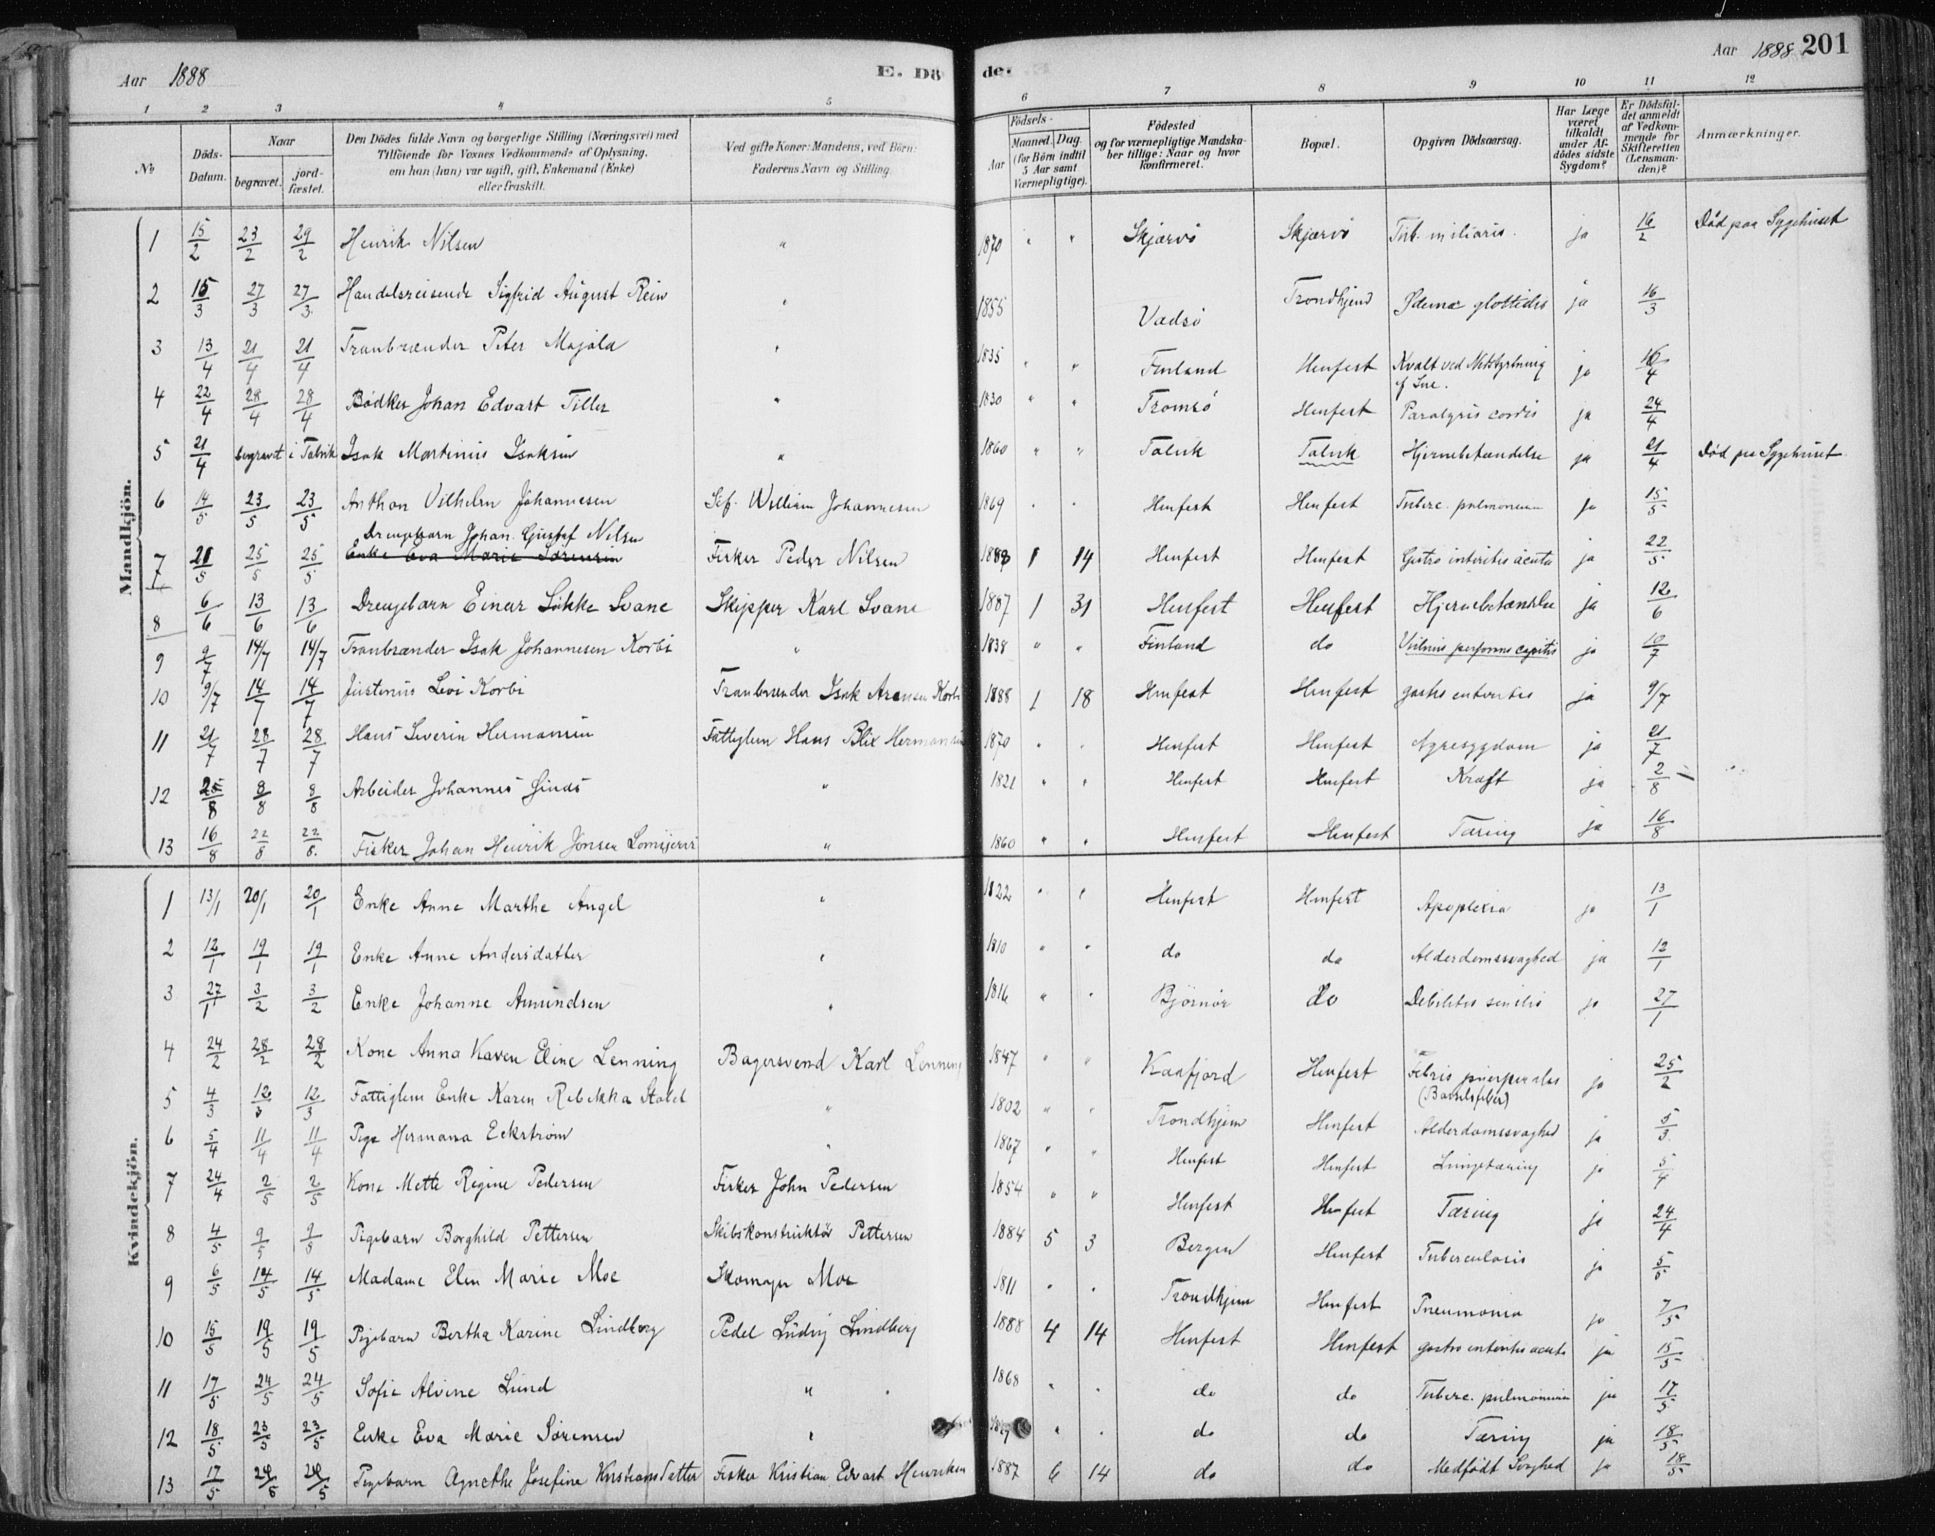 Aar 1888
E. Dö
de.
Aar 1888 201
1 2 3 4 5 6 7 8 9 10 11 12
No
Döds-Datum.
Naar
begravet.
jord-fæstet.
Den Dödes fulde Navn og borgerlige Stilling (Næringsvei) med
Tilföiende for Voxnes Vedkommende af Oplysning,
om han (hun) var ugift, gift, Enkemand (Enke)
eller fraskilt.
Ved gifte Koner: Mandens, ved Börn:
Faderens Navn og Stilling.
Födsels-
Aar
Maaned. Dag.
(for Börn indtil
5 Aar samt
Værnepligtige).
Födested
og for værnepligtige Mandska-
ber tillige: Naar og hvor
konfirmeret.
Bopæl.
Opgiven Dödsaarsag.
Har Læge
været
tilkaldt
under Af-
dödes sidste
Sygdom?
Er Dödsfal-
det anmeldt
af Vedkom-
mende for
Skifteretten
(Lensman-
den)?
Anmærkninger.
Mandkjön.
1 15/2 23/2 29/2 Henrik Nilsen " 1870 " " Skjærvö Skjærvö Tub. miliaris. ja 16/2 Död paa Sygehuset
2 15/3 27/3 27/3 Handelsreisende Sigfrid August Rein " 1855 Vadsö Trondhjem glottidis ja 16/3
3 13/4 21/4 21/4 Tranbrænder Peter Majala " 1835 " " Finland Hmfest Kvalt ved Nedstyrtning af Sne. ja 16/4
4 22/4 28/4 28/4 Bödker Johan Edvart Tiller " 1830 " " Tromsö Hmfest Paralysis cordis ja 24/4
5 21/4 begravet i Talvik Isak Martinus Isaksen " 1860 " " Talvik Talvik Hjernebetændelse ja 21/4 Död paa Sygehuset
6 14/5 23/5 23/5 Anthon Vilhelm Johannesen William Johannesen 1869 " " Hmfest Hmfest Tuberc. pulmonum ja 15/5
Drengebarn Johan Gustaf Nilsen
7 21/5 25/5 25/5 Enke Eva Marie Sørensen Fisker Peder Nilsen 1888 1 14 Hmfest Hmfest Gastro interitis acuta ja 22/5
8 6/6 13/6 13/6 Drengebarn Einar Løkke Svane Skipper Karl Svane 1887 1 31 Hmfest Hmfest Hjernebetændelse ja 12/6
9 9/7 14/7 14/7 Tranbrænder Isak Johannesen Korbi " 1838 " " Finland do capitis ja 10/7
10 9/7 14/7 14/7 Justinus Levi Korbi Tranbrænder Isak Korbi 1888 1 18 Hmfest Hmfest gastro enteritis ja 9/7
11 21/7 28/7 28/7 Hans Severin Hermansen Fattiglem Hans Blix Hermansen 1870 " " Hmfest Hmfest Nyresygdom ja 21/7
12 8/8 8/8 Arbeider Johannes " 1821 " " Hmfest Hmfest Kræft ja 2/8
13 16/8 22/8 22/8 Fisker Johan Henrik Jönsen " 1860 " " Hmfest Hmfest Tæring ja 16/8
Kvindekjön.
1 13/1 20/1 20/1 Enke Anne Marthe Angel " 1822 " " Hmfest Hmfest Apoplexia ja 13/1
2 12/1 19/1 19/1 Enke Anne Andersdatter " 1810 " " do do Alderdomssvaghed ja 12/1
3 27/1 3/2 3/2 Enke Johanne Amundsen " 1816 " " Björnör do Debilitas senilis ja 27/1
4 24/2 28/2 28/2 Kone Anna Karen Eline Lenning Bagersvend Karl Lenning 1847 " " Kaafjord Hmfest Febris puerperalis (Barselfeber) ja 25/2
5 4/3 12/3 12/3 Fattiglem Enke Karen Rebekka Stabel " 1802 " " Trondhjem Hmfest Alderdomssvaghed ja 5/3
6 5/4 11/4 11/4 Pige Hermana Eckström " 1867 " " Hmfest Hmfest Lungetæring ja 5/4
7 24/4 2/5 2/5 Kone Mette Regine Pedersen Fisker John Pedersen 1854 " " Hmfest Hmfest Tæring ja 24/4
8 4/5 9/5 9/5 Pigebarn Borghild Pettersen Skibskonstruktör Pettersen 1884 5 3 Bergen Hmfest Tuberculosis ja 5/5
9 6/5 14/5 14/5 Madame Elen Marie Moe Skomager Moe 1811 " " Trondhjem Hmfest Pneumonia ja 7/5
10 15/5 19/5 19/5 Pigebarn Bertha Karine Lindberg Pedel Ludvig Lindberg 1888 4 14 Hmfest Hmfest gastro enteritis acuta ja 15/5
11 17/5 24/5 24/5 Sofie Alvine Lund " 1868 " " do do Tuberc. pulmonum ja 17/5
12 18/5 23/5 23/5 Enke Eva Marie Sörensen " " " do do Tæring ja 18/5
13 17/5 Pigebarn Agnethe Josefine Kristiansdatter Fisker Kristian Edvart Henriksen 1887 6 14 do do Medfödt Svaghed ja 18/5